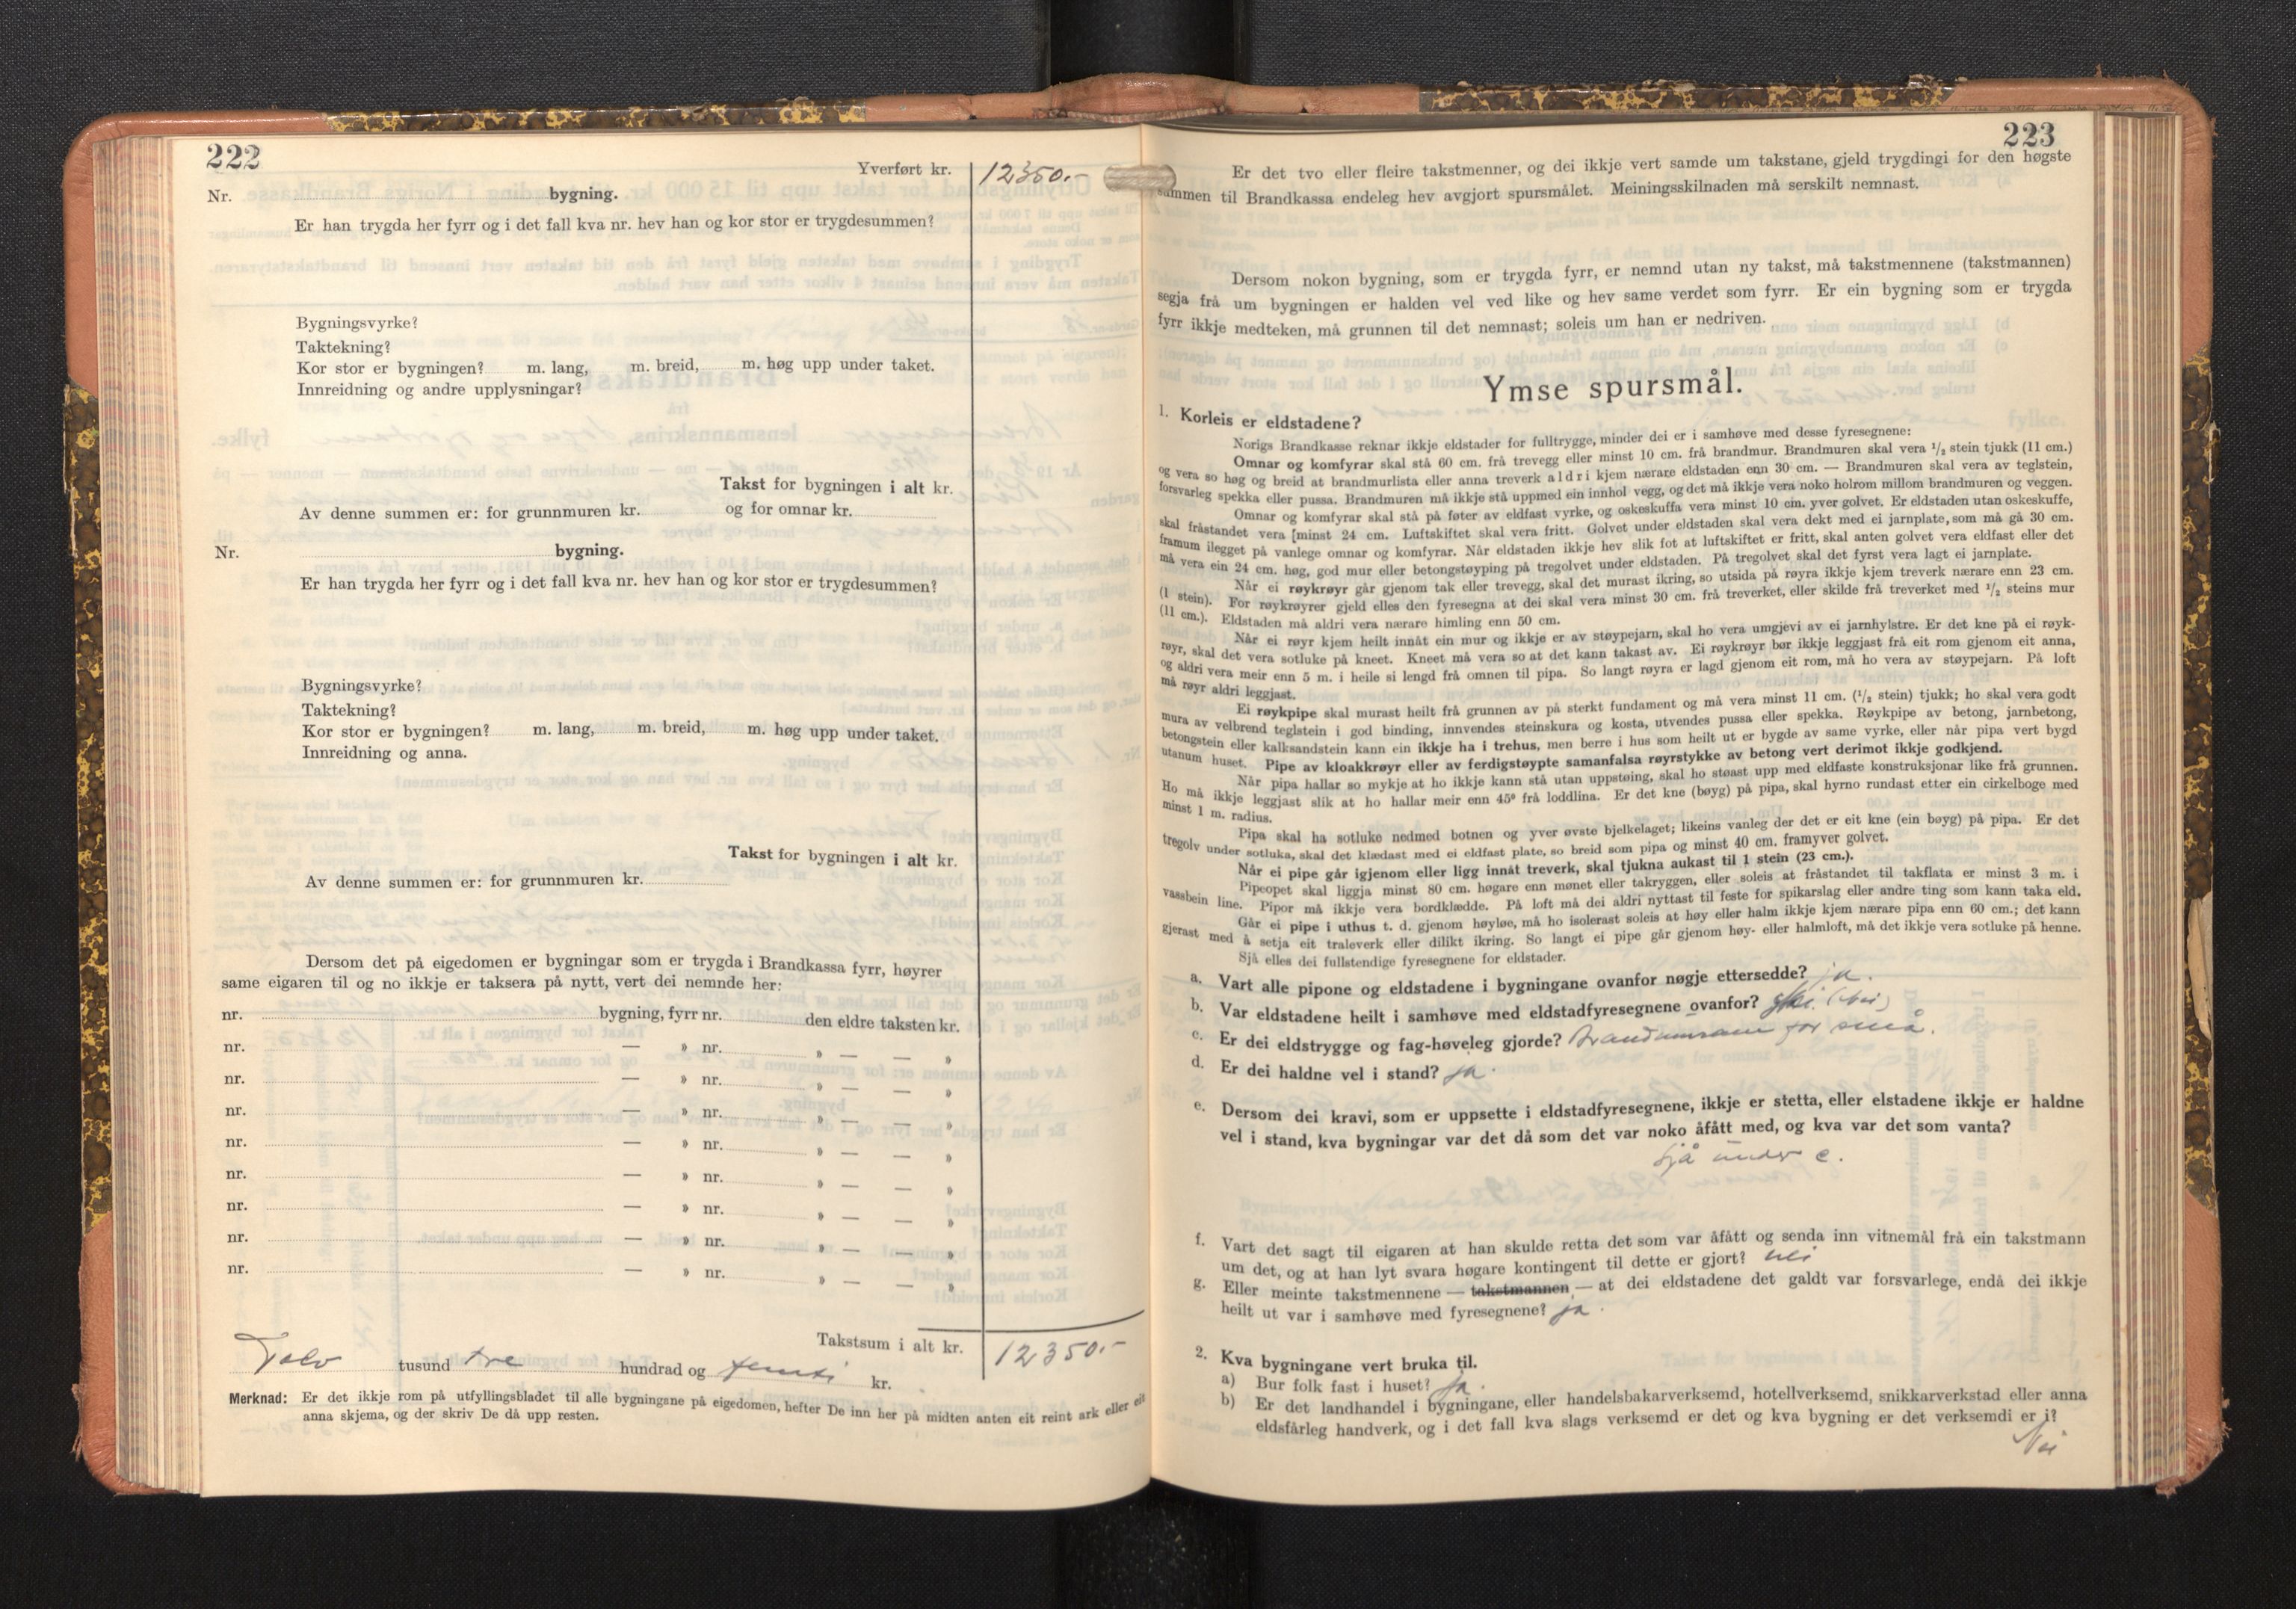 222
Yverført kr. 12350.-
Nr. bygning.
Er han trygda her fyrr og i det fall kva nr. hev han og kor stor er trygdesummen?
Bygningsvyrke?
Taktekning?
Kor stor er bygningen? m. lang, m. breid, m. høg upp under taket.
Innreidning og andre upplysningar?
Takst for bygningen i alt kr.
Av denne summen er: for grunnmuren kr. og for omnar kr.
Nr. bygning.
Er han trygda her fyrr og i det fall kva nr. hev han og kor stor er trygdesummen?
Bygningsvyrke?
Taktekning?
Kor stor er bygningen? m. lang, m. breid, m. høg upp under taket.
Innreidning og anna.
Takst for bygningen i alt kr.
Av denne summen er: for grunnmuren kr.
Dersom det på eigedomen er bygningar som er trygda i Brandkassa fyrr, høyrer
same eigaren til og no ikkje er taksera på nytt, vert dei nemnde her:
nr. bygning, fyrr nr. den eldre taksten kr.
nr. — » nr. » — — »
nr. — » nr. » — — »
nr. — » nr. » — — »
nr. — » nr. » — — »
nr. — » nr. » — — »
nr. — » nr. » — — »
nr. — » nr. » — — »
nr. — » nr. » — — »
Takstsum i alt kr. 12350.-
Tolv tusund tre hundrad og femti kr.
Merknad: Er det ikkje rom på utfyllingsbladet til alle bygningane på eigedomen, hefter De inn her på midten anten eit reint ark eller eit
anna skjema, og der skriv De då upp resten.
223
Er det tvo eller fleire takstmenner, og dei ikkje vert samde um takstane, gjeld trygdingi for den høgste
summen til Brandkassa endeleg hev avgjort spursmålet. Meiningsskilnaden må serskilt nemnast.
Dersom nokon bygning, som er trygda fyrr, er nemnd utan ny takst, må takstmennene (takstmannen)
segja frå um bygningen er halden vel ved like og hev same verdet som fyrr. Er ein bygning som er trygda
fyrr ikkje medteken, må grunnen til det nemnast; soleis um han er nedriven.
Ymse spursmål.
1. Korleis er eldstadene?
Norigs Brandkasse reknar ikkje eldstader for fulltrygge, minder dei er i samhøve med desse fyresegnene:
Omnar og komfyrar skal stå 60 cm. frå trevegg eller minst 10 cm. frå brandmur. Brandmuren skal vera ½ stein tjukk (11 cm.)
og vera so høg og breid at brandmurlista eller anna treverk aldri kjem nærare eldstaden enn 30 cm. — Brandmuren skal vera av teglstein,
forsvarleg spekka eller pussa. Brandmuren må ikkje stå uppmed ein innhol vegg, og det må ikkje vera noko holrom millom brandmuren og veggen.
Omnar og komfyrar skal stå på føter av eldfast vyrke, og oskeskuffa vera minst 10 cm. yver golvet. Er eldstaden utan oskeskuffe,
skal fråstandet vera [minst 24 cm. Luftskiftet skal vera fritt. Golvet under eldstaden skal vera dekt med ei jarnplate, som må gå 30 cm.
framum ilegget på vanlege omnar og komfyrar. Når eldstaden ikkje hev slik fot at luftskiftet er fritt, skal anten golvet vera eldfast eller det
må vera ein 24 cm. høg, god mur eller betongstøyping på tregolvet under eldstaden. På tregolvet skal det fyrst vera lagt ei jarnplate.
Når ei røykrøyr går gjenom tak eller trevegg, skal det murast ikring, so utsida på røyra ikkje kjem treverk nærare enn 23 cm.
(1 stein). For røykrøyrer gjeld elles den fyresegna at dei skal vera minst 30 cm. frå treverket, eller skilde frå treverket med ½ steins mur
(11 cm.). Eldstaden må aldri vera nærare himling enn 50 cm.
Når ei røyr kjem heilt innåt ein mur og ikkje er av støypejarn, skal ho vera umgjevi av ei jarnhylstre. Er det kne på ei røyk-
røyr, skal det vera sotluke på kneet. Kneet må vera so at det kann takast av. Ei røykrøyr bør ikkje leggjast frå eit rom gjenom eit anna,
og aldri vera meir enn 5 m. i heile si lengd frå omnen til pipa. So langt røyra er lagd gjenom eit rom, må ho vera av støypejarn. På loft
må røyr aldri leggjast.
Ei røykpipe skal murast heilt frå grunnen av på sterkt fundament og må vera minst 11 cm. (½ stein) tjukk; ho skal vera godt
mura av velbrend teglstein i god binding, innvendes steinskura og kosta, utvendes pussa eller spekka. Røykpipe av betong, jarnbetong,
betongstein eller kalksandstein kann ein ikkje ha i trehus, men berre i hus som heilt ut er bygde av same vyrke, eller når pipa vert bygd
utanum huset. Pipe av kloakkrøyr eller av ferdigstøypte samanfalsa røyrstykke av betong vert derimot ikkje godkjend.
Når pipa hallar so mykje at ho ikkje kann stå utan uppstøing, skal ho støast upp med eldfaste konstruksjonar like frå grunnen.
Ho må ikkje leggjast slik at ho hallar meir enn 45° frå loddlina. Er det kne (bøyg) på pipa, skal hyrno rundast etter ein cirkelboge med
minst 1 m. radius.
Pipa skal ha sotluke nedmed botnen og yver øvste bjelkelaget; likeins vanleg der det er eit kne (ein bøyg) på pipa. Er det
tregolv under sotluka, skal det klædast med ei eldfast plate, so breid som pipa og minst 40 cm. framyver golvet.
Når ei pipe går igjenom eller ligg innåt treverk, skal tjukna aukast til 1 stein (23 cm.).
Pipeopet skal liggja minst 80 cm. høgare enn mønet eller takryggen, eller soleis at fråstandet til takflata er minst 3 m. i
vassbein line. Pipor må ikkje vera bordklædde. På loft må dei aldri nyttast til feste for spikarslag eller andre ting som kann taka eld.
Går ei pipe i uthus t. d. gjenom høyløe, må ho isolerast soleis at høy eller halm ikkje kjem nærare pipa enn 60 cm.; det kann
gjerast med å setja eit traleverk eller dilikt ikring. So langt ei pipe går gjenom høy- eller halmloft, må det ikkje vera sotluke på henne.
Sjå elles dei fullstendige fyresegnene for eldstader.
a. Vart alle pipone og eldstadene i bygningane ovanfor nøgje ettersedde? ja.
b. Var eldstadene heilt i samhøve med eldstadfyresegnene ovanfor? (Nei)
c. Er dei eldstrygge og fag-høveleg gjorde? Brandmurane for små.
d. Er dei haldne vel i stand? ja.
e. Dersom dei kravi, som er uppsette i eldstadfyresegnene, ikkje er stetta, eller elstadene ikkje er haldne
vel i stand, kva bygningar var det då som det var noko åfått med, og kva var det som vanta?
Sjå under c.
f. Vart det sagt til eigaren at han skulde retta det som var åfått og senda inn vitnemål frå ein takstmann
um det, og at han lyt svara høgare kontingent til dette er gjort? Nei
g. Eller meinte takstmennene — takstmannen — at dei eldstadene det galdt var forsvarlege, endå dei ikkje
heilt ut var i samhøve med fyresegnene? ja.
2. Kva bygningane vert bruka til.
a) Bur folk fast i huset? ja.
b) Er det landhandel i bygningane, eller handelsbakarverksemd, hotellverksemd, snikkarverkstad eller anna
eldsfårleg handverk, og i det fall kva slags verksemd er det og kva bygning er det verksemdi er i?
Nei